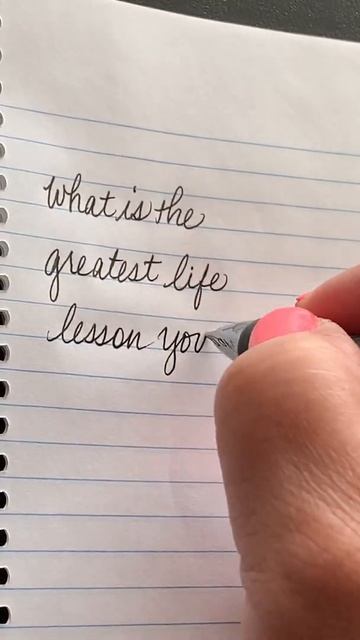 what is the
greatest life
lesson you